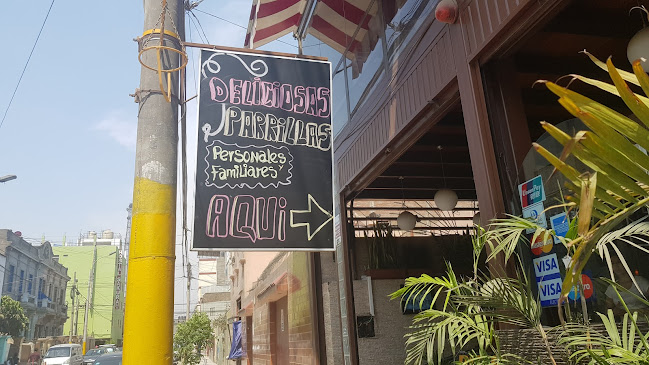 DELICIOSAS
PARRILLAS
Personales Y
Familiares
AQUI
UnionPay
VISA
VISA